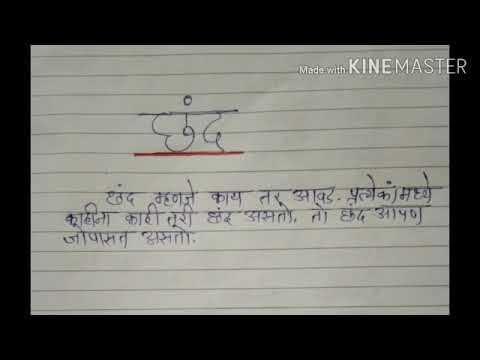 Made with KINEMASTER
छंद
छंद म्हणजे काय तर आवड. प्रत्येकांमध्ये
काहीना काही तरी छंद असतो. तो छंद आपण
जोपासत असतो.